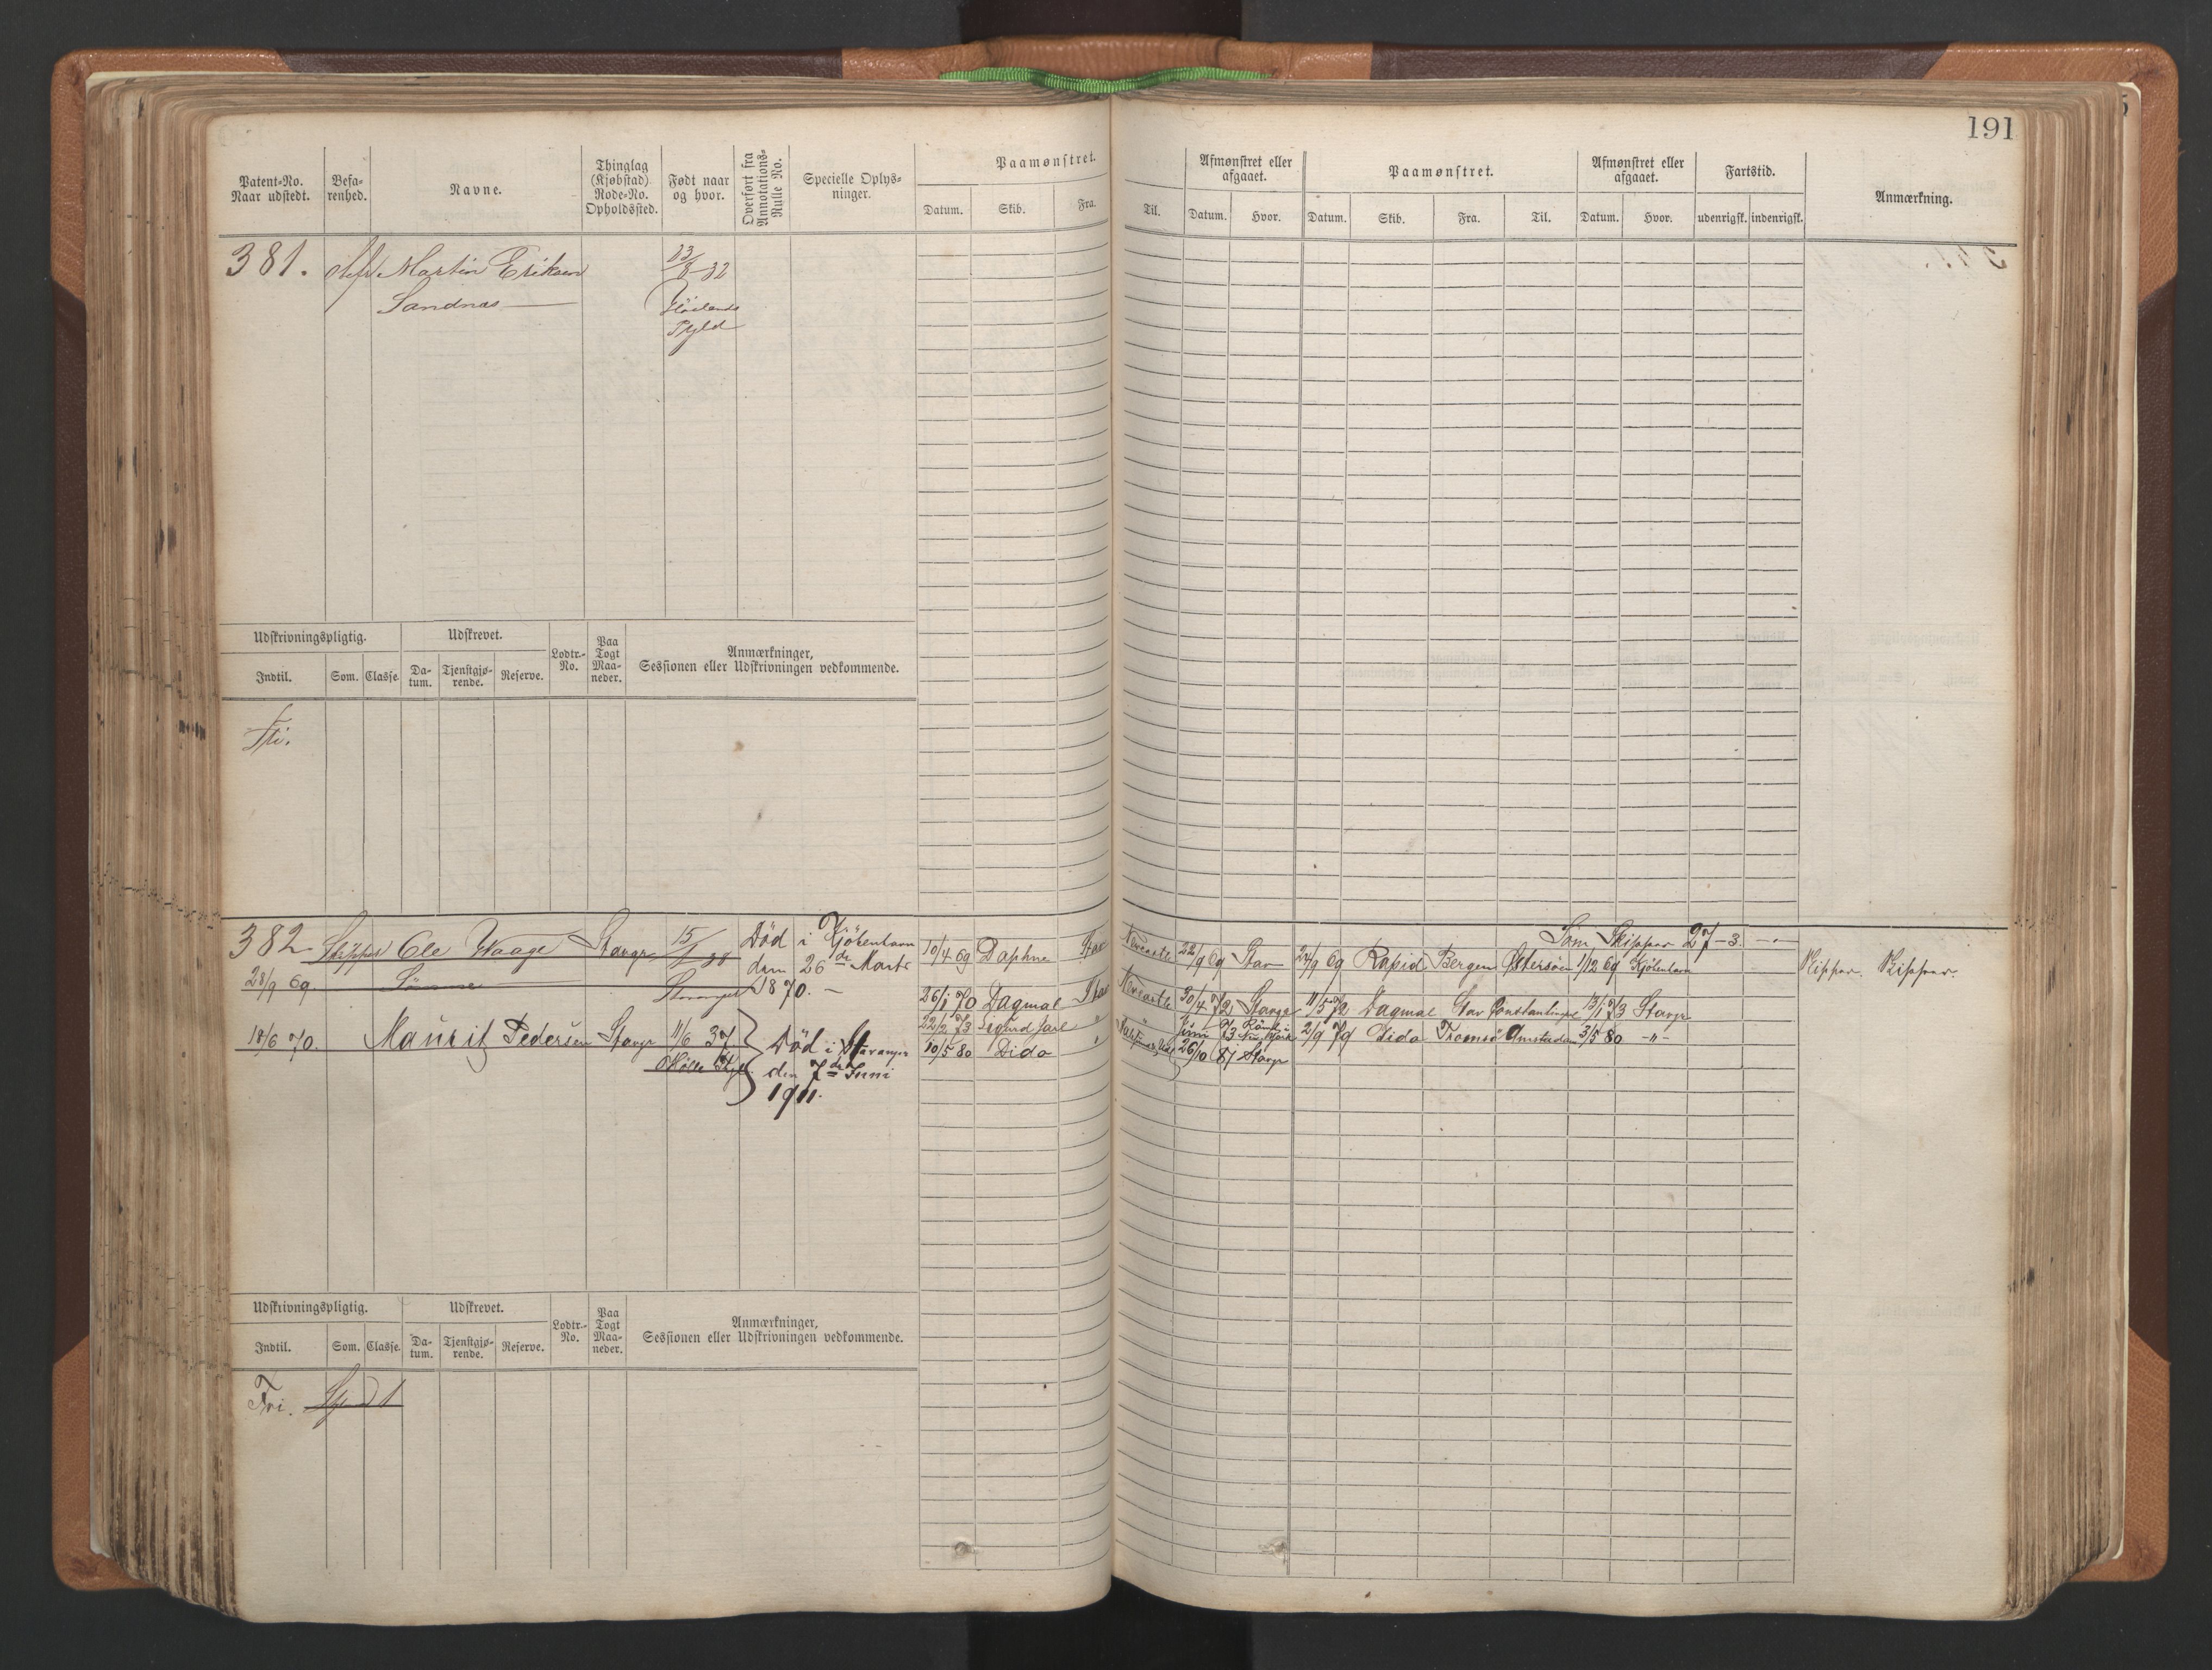 191
Patent-No. Naar udstedt.
Befarenhed.
Navne.
Thinglag (Kjøbstad). Rode-No. Opholdssted.
Født naar og hvor.
Overført fra Annotations-Rulle No.
Specielle Oplysninger.
Paamønstret.
Datum. Skib. Fra.
Til.
Afmønstret eller afgaaet.
Datum. Hvor.
Paamønstret.
Datum. Skib. Fra. Til.
Afmønstret eller afgaaet.
Datum. Hvor.
Fartstid.
udenrigsk. indenrigsk.
Anmærkning.
381. Martin Eriksen 13/8-32
Sandnæs
Pgld
Udskrivningspligtig. Udskrevet. Lodtr.-No. Paa Togt Maaneder. Anmærkninger, Sessionen eller Udskrivningen vedkommende.
Indtil. Som. Classe. Datum. Tjenstgjørende. Reserve.
Fri.
382 Skipper Ole Waage Stavgr 15/ Død i Kjöbenhavn
28/9 69 Sömme Stavanger den 26de Marts
1870.
18/6 70. Maurits Pedersen Stavgr 11/6 37 Død i Stavanger
den 7de Juni
1911.
10/4 69 Daphne Stav Newcastle 22/9 69 Stav 24/9 69 Rapid Bergen Östersöen 1/12 69 Kjöbenhavn
Som Skipper 27-3
Skipper. Skipper.
26/1 70 Dagmar Stav Newcastle 30/4 72 Stavgr 11/5 72 Dagmar Stav Constantinopel 13/1 73 Stavgr
22/2 73 Sigurd Jarl " 73 2/9 79 Dido Tromsö Amsterdam 3/5 80 -"-
10/5 80 Dido " 26/10 81 Stavgr
Udskrivningspligtig. Udskrevet. Lodtr.-No. Paa Togt Maaneder. Anmærkninger, Sessionen eller Udskrivningen vedkommende.
Indtil. Som. Classe. Datum. Tjenstgjørende. Reserve.
Fri.